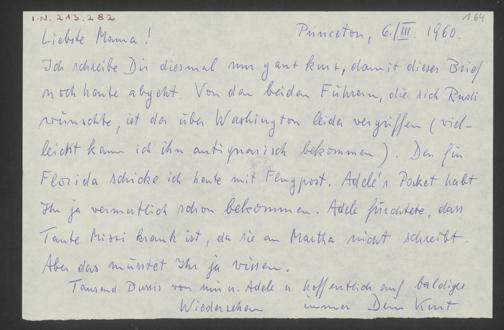 I.N. 213.282
164
Princeton, 6./III. 1960.
Liebste Mama!
Ich schreibe Dir diesmal nur ganz kurz, damit dieser Brief
noch heute abgeht. Von den beiden Führern, die sich Rudi
wünschte, ist der über Washington leider vergriffen (viel-
leicht kann ich ihn antiquarisch bekommen). Den für
Florida schicke ich heute mit Flugpost. Adele's Packet habt
Ihr ja vermutlich schon bekommen. Adele fürchtete, dass
Tante Mizzi krank ist, da sie an Martha nicht schreibt.
Aber das müsstet Ihr ja wissen.
Tausend Bussis von mir u. Adele u. hoffentlich auf baldiges
Wiedersehen immer Dein Kurt